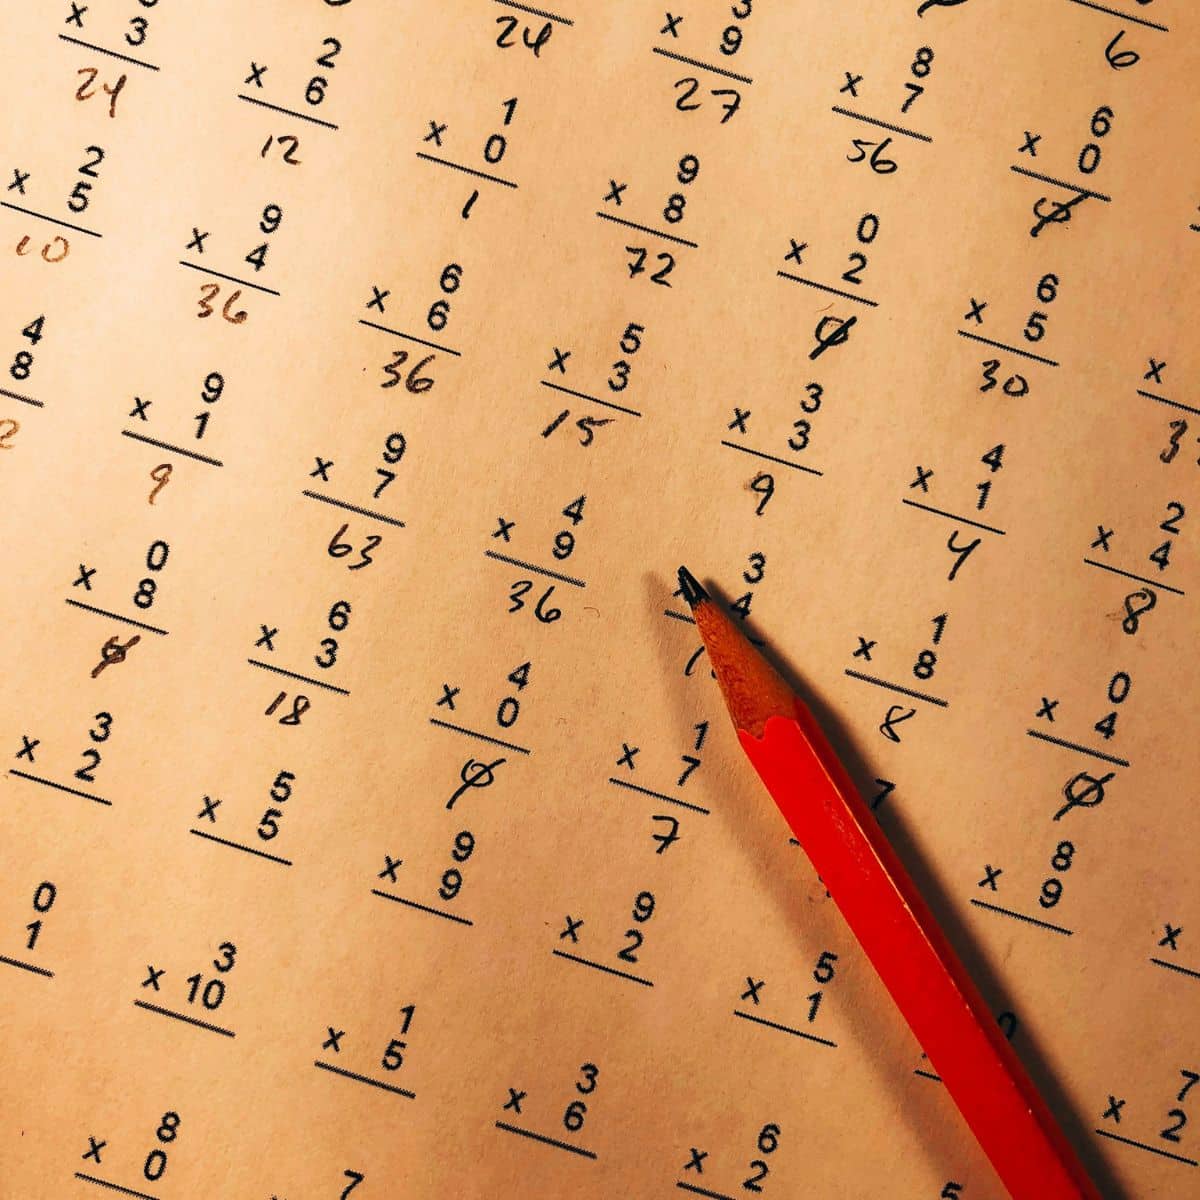 6
24
x 9
27
8
x 7
56
6
x 0
0
x 3
24
2
x 6
12
1
x 0
1
9
x 8
72
0
x 2
0
6
x 5
30
x
3
2
x 5
10
9
x 4
36
6
x 6
36
5
x 3
15
3
x 3
9
4
x 1
4
2
x 4
8
4
8
2
9
x 1
9
9
x 7
63
4
x 9
36
3
x 4
1
1
x 8
8
0
x 4
0
0
x 8
0
6
x 3
18
4
x 0
0
1
x 7
7
7
8
x 9
x
3
x 2
5
x 5
9
x 9
9
x 2
5
x 1
7
x 2
0
1
3
x 10
1
x 5
3
x 6
6
x 2
5
8
x 0
7